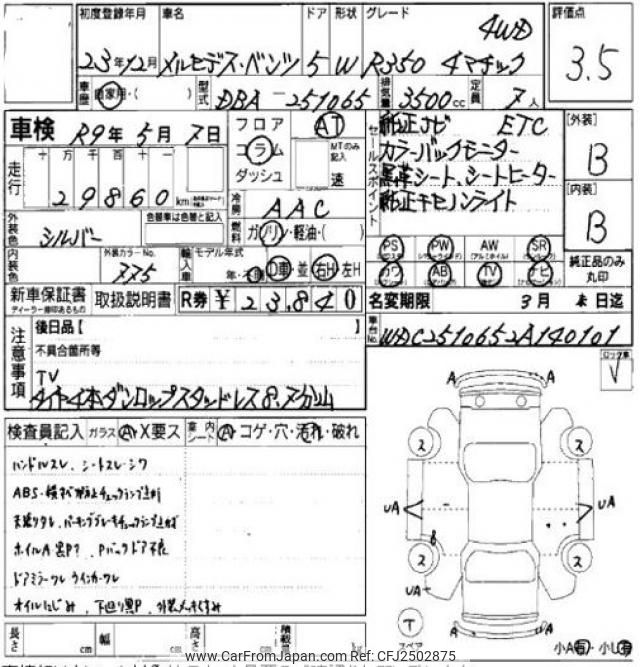 初度登録年月 車名 ドア 形状 グレード 評価点
23年12月 メルセデス・ベンツ 5 W R350 4マチック 4WD
3.5
車歴 自家用・( ) 型式 DBA-251065 排気量 3500cc 定員 7人
車検 R9年5月7日
フロア コラム ダッシュ
AT
MTのみ記入
速
セールスポイント
純正ナビ ETC
カラーバックモニター
黒革シート、シートヒーター
純正キセノンライト
[外装]
B
[内装]
B
純正品のみ丸印
走行 十 万 千 百 十 一
29860 km
冷房 AAC
燃料 ガソリン・軽油・( )
外装色 シルバー
色替車は色替と記入
内装色
外装カラーNo.
775
輸入車 モデル年式
年・不明 D車 並 右H 左H
PS PW AW SR
(アルミホイル)
カワ AB TV ナビ
新車保証書
ディーラー捺印あるもの
取扱説明書
R券 ¥23,840
名変期限 3月末日迄
車台No. WDC2510652A140101
注意事項
後日品【 】
不具合箇所等
TV
タイヤ4本ダンロップスタッドレス8.7分山
検査員記入 ガラス A・X要ス 室内シート A・コゲ・穴・汚れ・破れ
ハンドルスレ、シートスレ・シワ
ドアミラーワレ ウインカーワレ
オイルにじみ、下廻り異P
ロック車
A A
ス ス
UA UA
ス ス
UA
A A
T
スペア
小A有・小U有
長さ cm 幅 cm 高さ cm 積載量
www.CarFromJapan.com Ref: CFJ2502875